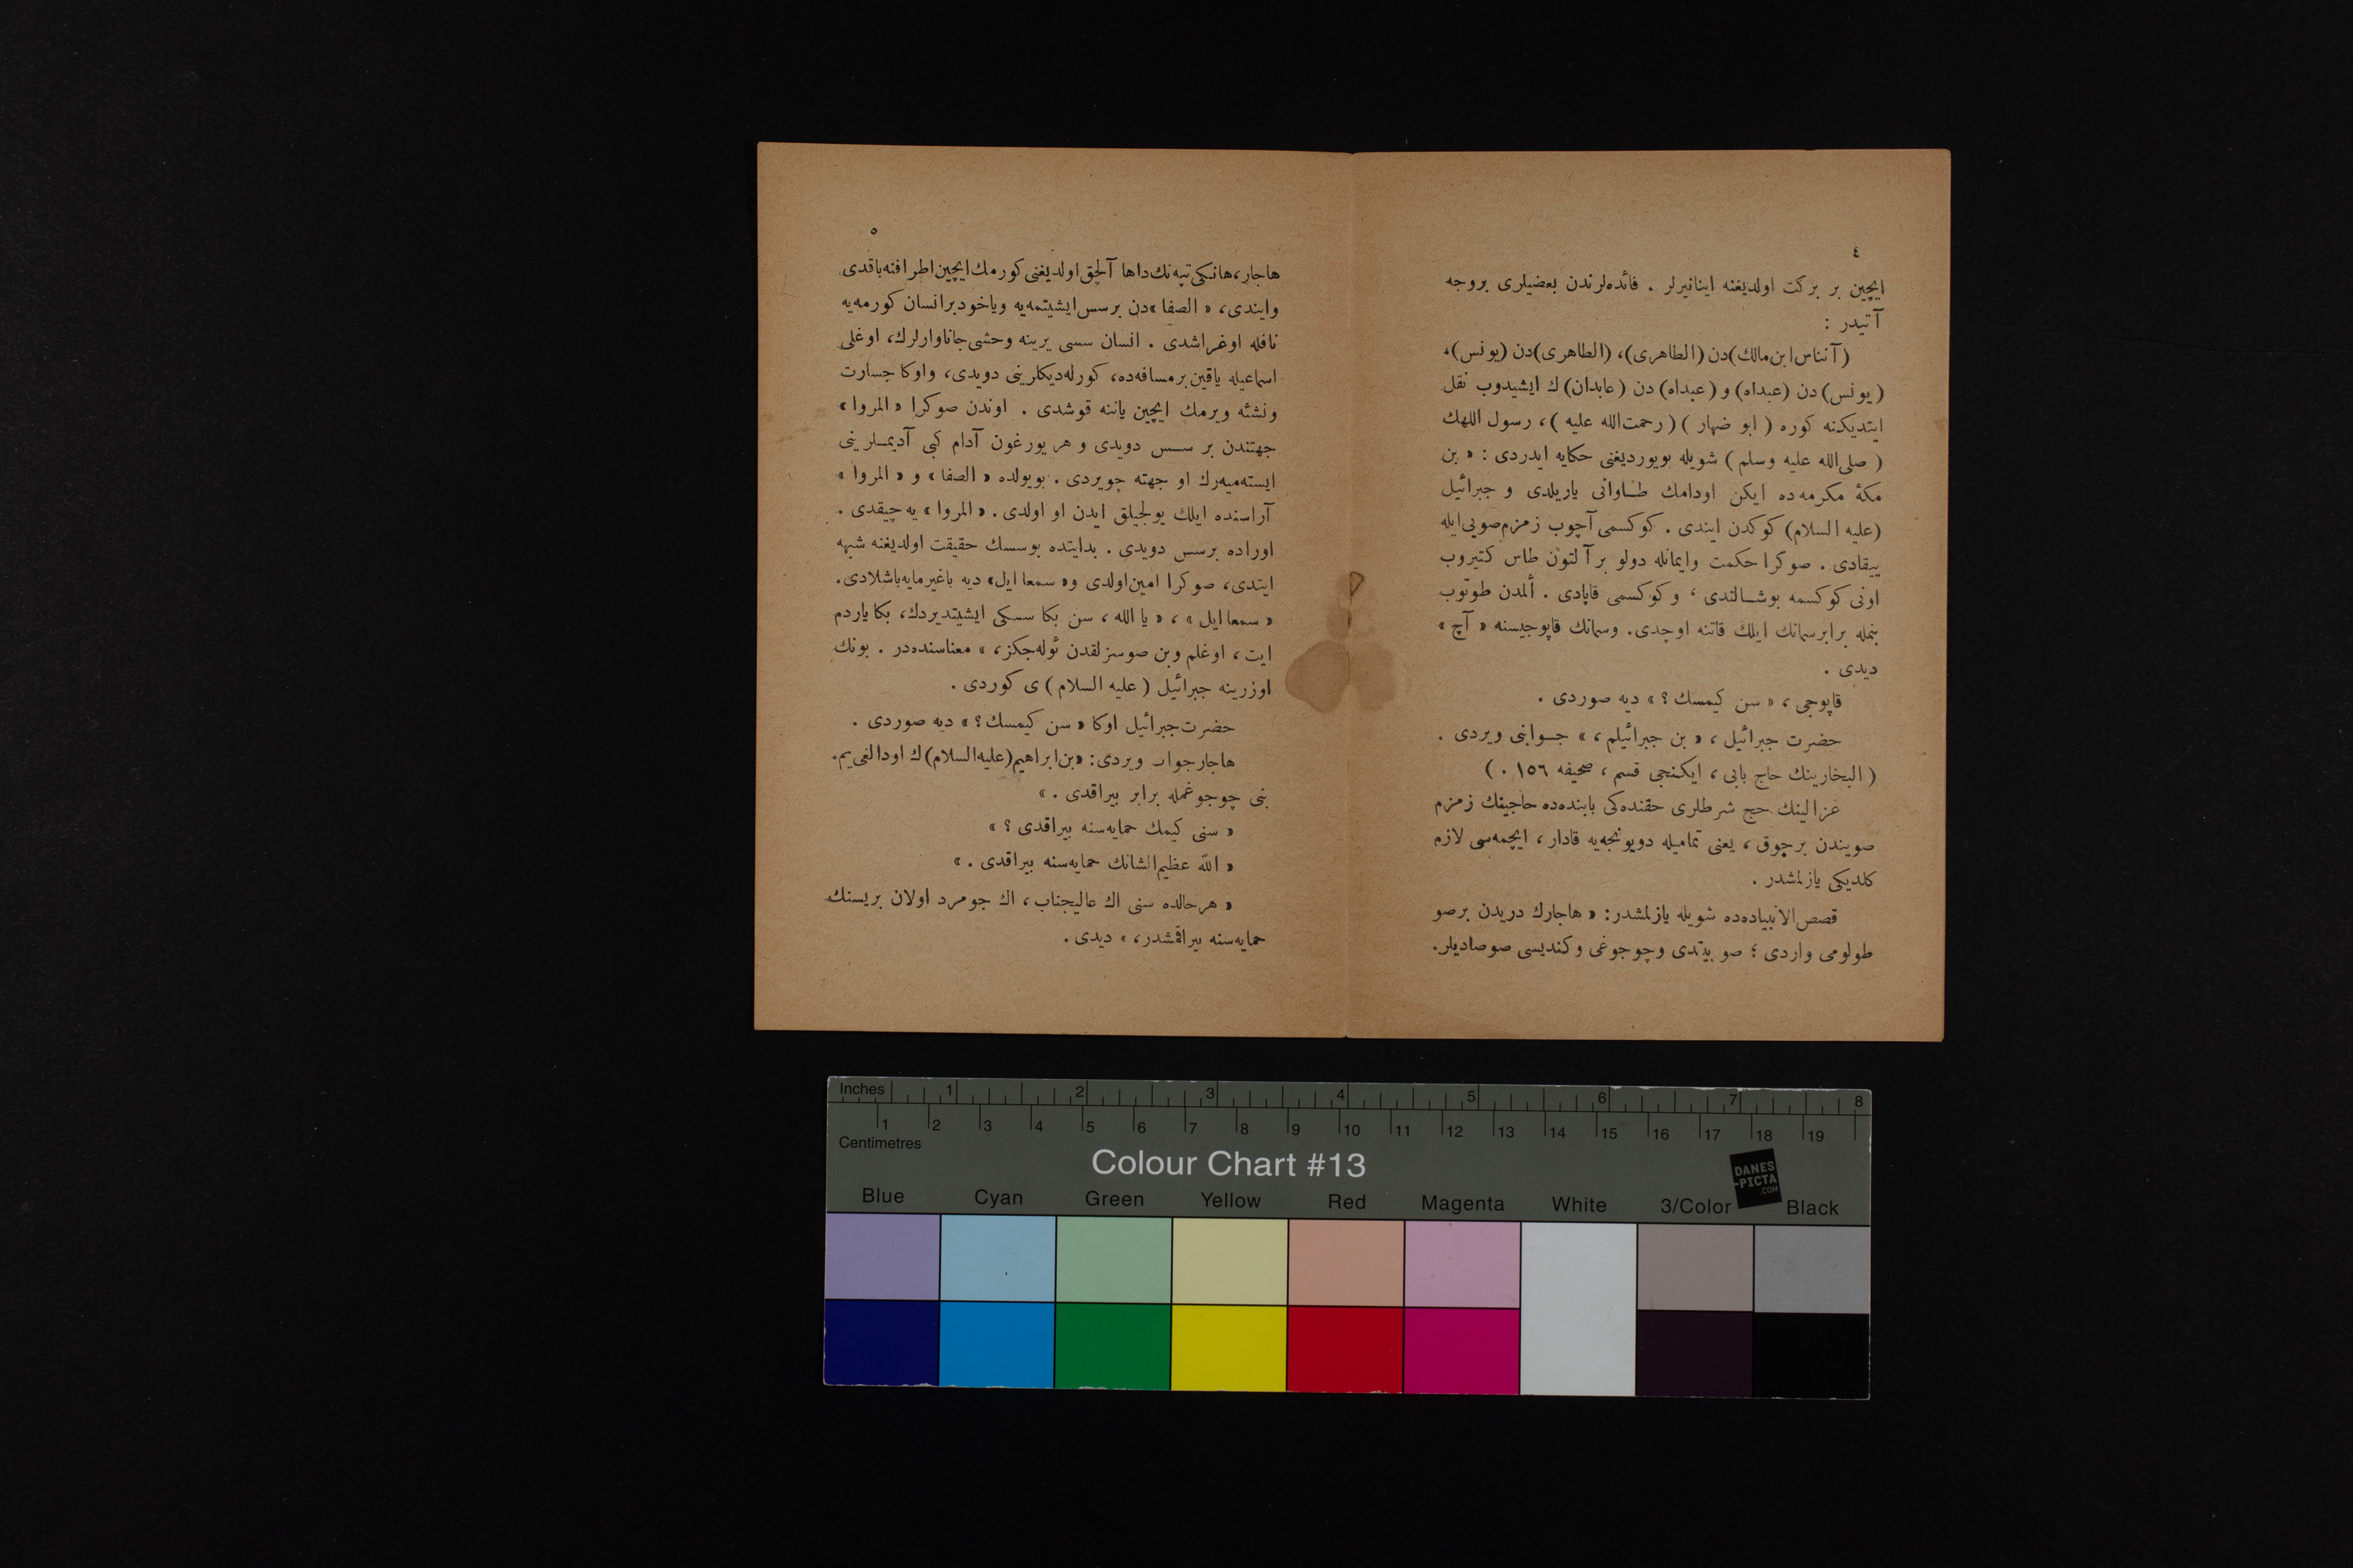 ٤
ایچین بر برکت اولدیغنه اینانیرلر . فائده‌لرندن بعضیلری بروجه
آتیدر :
(آنناس‌ابن‌مالك)دن (الطاهری)، (الطاهری)دن (یونس)،
(یونس) دن (عبداه) و (عبداه) دن (عابدان) ك ایشیدوب نقل
ایتدیکنه کوره ( ابو ضهار ) ( رحمت‌الله علیه )، رسول اللهك
( صلی‌الله علیه وسلم ) شویله بویوردیغنی حکایه ایدردی : « بن
مکۀ مکرمه‌ده ایکن اودامك طـاوانی یاریلدی و جبرائیل
(علیه السلام) کوکدن ایندی . کوکسمی آچوب زمزم‌صویی‌ایله
ییقادی . صوکرا حکمت وایمانله دولو بر آلتون طاس کتیروب
اونی کوکسمه بوشـالتدی ، وکوکسمی قاپادی . ألمدن طوتوب
بنمله برابرسمانك ایلك قاتنه اوچدی. وسمانك قاپوجیسنه « آچ »
دیدی .
قاپوجی ، « سن کیمسك ؟ » دیه صوردی .
حضرت جبرائیل ، « بن جبرائیلم ، » جـوابنی ویردی .
( البخارینك حاج بابی ، ایکنجی قسم ، صحیفه ١٥٦ . )
غزالینك حج شرطلری حقنده‌کی بابنده‌ده حاجینك زمزم
صویندن برچوق ، یعنی تمامیله دویونجه‌یه قادار ، ایچمه‌سی لازم
کلدیکی یازلمشدر .
قصص‌الانبیاده‌ده شویله یازلمشدر: « هاجارك دریدن برصو
طولومی واردی ؛ صو بیتدی وچوجوغی وکندیسی صوصادیلر.
٥
هاجار، هانکی تپه‌نك‌داها آلچق‌اولدیغنی کورمك‌ایچین‌اطرافنه‌باقدی
وایندی، « الصفا »دن برسس‌ایشیتمه‌یه ویاخودبرانسان کورمه‌یه
نافله اوغراشدی . انسان سسی یرینه وحشی‌جاناوارلرك، اوغلی
اسماعیله یاقین‌برمسافه‌ده، کورله‌دیکلرینی دویدی، واوکا جسارت
ونشئه ویرمك ایچین یاننه قوشدی . اوندن صوکرا « المروا »
جهتندن بر سـس دویدی و هر یورغون آدام کبی آدیمـلرینی
ایسته‌میه‌رك او جهته چویردی . بویولده « الصفا » و « المروا »
آراسنده ایلك یولجیلق ایدن او اولدی . « المروا » یه چیقدی .
اوراده برسس دویدی . بدایتده بوسسك حقیقت اولدیغنه شبهه
ایتدی، صوکرا امین‌اولدی و« سمعا ایل» دیه باغیرمایه‌باشلادی.
« سمعا ایل » ، « یا الله ، سن بکا سسکی ایشیتدیردك، بکا یاردم
ایت ، اوغلم وبن صوسزلقدن ئوله‌جکز ، » معناسنده‌در . بونك
اوزرینه جبرائیل ( علیه السلام ) ی کوردی .
حضرت‌جبرائیل اوکا « سن کیمسك ؟ » دیه صوردی .
هاجارجواب ویردی: «بن‌ابراهیم(علیه‌السلام)ك اودالغی‌یم.
بنی چوجوغمله برابر بیراقدی . »
« سنی کیمك حمایه‌سنه بیراقدی ؟ »
« الله عظیم‌الشانك حمایه‌سنه بیراقدی . »
« هرحالده سنی اك عالیجناب ، اك جومرد اولان بریسنك
حمایه‌سنه بیراقمشدر ، » دیدی .
Inches 1 2 3 4 5 6 7 8
1 2 3 4 5 6 7 8 9 10 11 12 13 14 15 16 17 18 19
Centimetres
Colour Chart #13
DANES
-PICTA
.COM
Blue Cyan Green Yellow Red Magenta White 3/Color Black